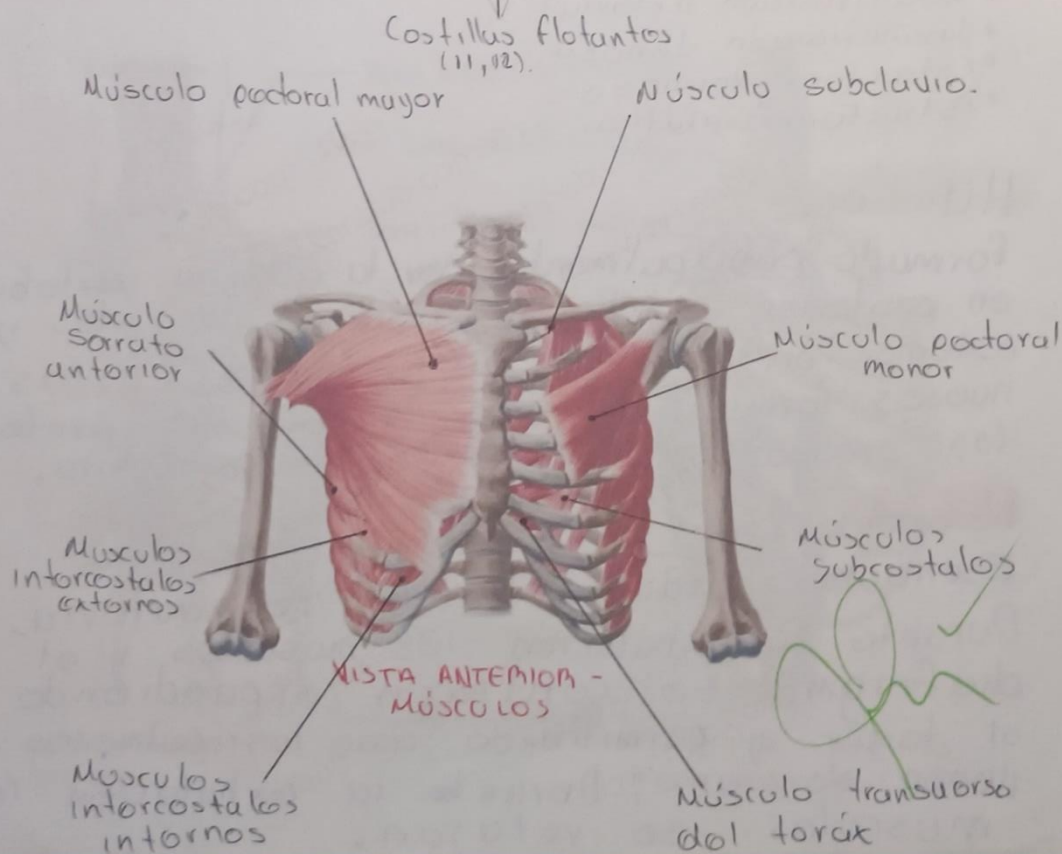 Costillas flotantes
(11,12).
Músculo pectoral mayor
Músculo subclavio.
Músculo
serrato
anterior
Músculo pectoral
menor
Musculos
intercostales
externos
Músculos
subcostales
VISTA ANTERIOR -
MÚSCULOS
Músculos
intercostales
internos
Músculo transverso
del toráx